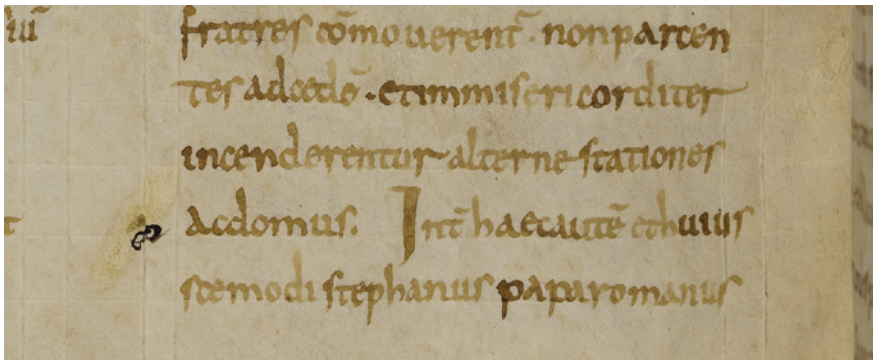 fratres cōmouerent̄ · non parcen
tes ad cędē · et immisericorditer
incenderentur alterne stationes
ac domus. Int̄ haec autē et huius
scemodi stephanus papa romanus